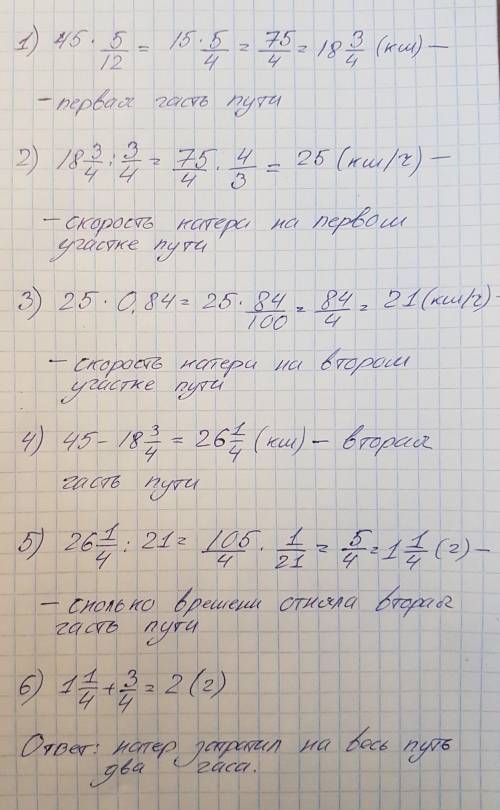 1) 45 · 5/12 = 15 · 5/4 = 75/4 = 18 3/4 (км) –
– первая часть пути
2) 18 3/4 : 3/4 = 75/4 · 4/3 = 25 (км/ч) –
– скорость катера на первом
участке пути
3) 25 · 0,84 = 25 · 84/100 = 84/4 = 21 (км/ч) –
– скорость катера на втором
участке пути
4) 45 – 18 3/4 = 26 1/4 (км) – вторая
часть пути
5) 26 1/4 : 21 = 105/4 · 1/21 = 5/4 = 1 1/4 (ч) –
– сколько времени отняла вторая
часть пути
6) 1 1/4 + 3/4 = 2 (ч)
Ответ: катер затратил на весь путь
два часа.